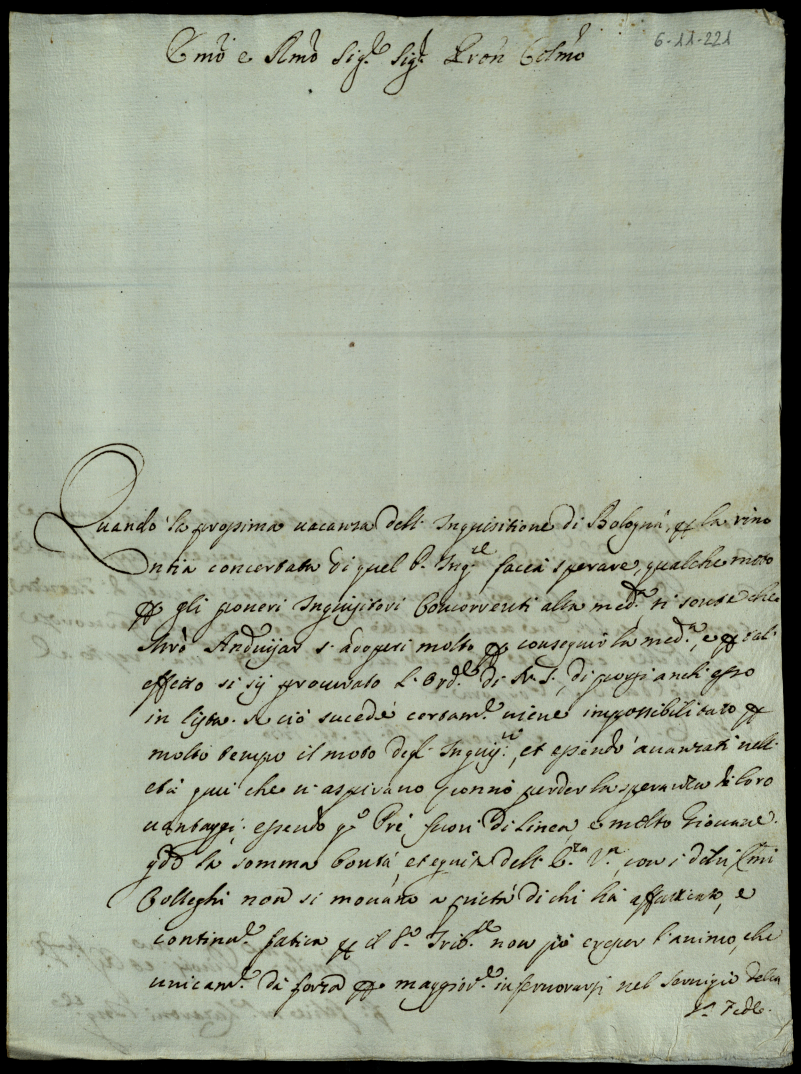 Emo e Rmo Sigr Sigr Pron Colmo
6-11-221
Quando la prossima vacanza dell' Inquisitione di Bologna, per la rinon
ntia concertata di quel P. Ingre faccia sperare qualche moto
per gli poveri Inquisitori Concorrenti alla meda si sente che
Andujar s'adoperi molto per conseguir la meda, e per tal'
effetto si sij procurato l'Orde di N. S. di porsi anch'esso
in lista. Se ciò succede certame viene impossibilitato per
molto tempo il moto degl' Inquiri, et essendo avanzati nell'
età quei che vi aspirano ponno perder la speranza di loro
vantaggi: essendo qo Pre fuori di linea, e molto Giovane.
qdo la somma bontà, et equità dell' E.za V.a con i delui Emi
Colleghi non si movano a pietà di chi hà affaticato, e
continue fatica per il So Trible non può cresser l'animo, che
unicame dà forza per maggiore infervorarsi nel servigio della
Sa Fede.